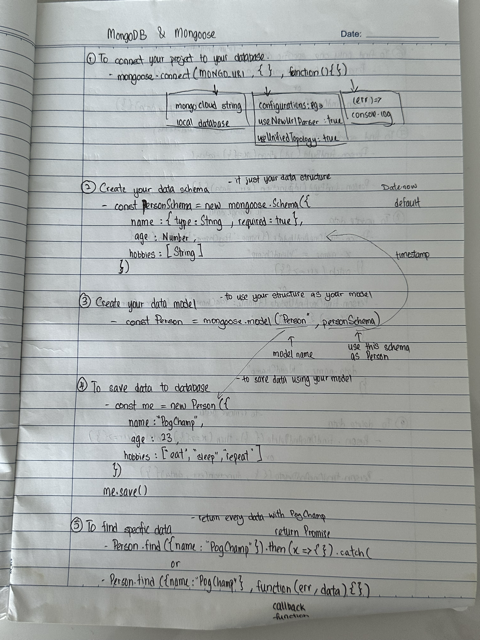 MongoDB & Mongoose
Date:
① To connect your project to your database.
- mongoose.connect(MONGO_URI, { }, function(){})
mongo cloud string
local database
configurations: e.g.
useNewUrlParser : true
useUnifiedTopology : true
(err)=>
console.log
② Create your data schema - it just your data structure
- const personSchema = new mongoose.Schema({
name : { type : String , required : true },
age : Number,
hobbies : [ String ]
})
Date.now
default
timestamp
③ Create your data model - to use your structure as your model
- const Person = mongoose.model("Person", personSchema)
model name
use this schema
as Person
④ To save data to database - to save data using your model
- const me = new Person({
name : "PogChamp",
age : 23,
hobbies : ["eat", "sleep", "repeat"]
})
me.save()
⑤ To find specific data - return every data with PogChamp
return Promise
- Person.find({name : "PogChamp"}).then(x => { }).catch(
or
- Person.find({name: "PogChamp"}, function(err, data){})
callback
function